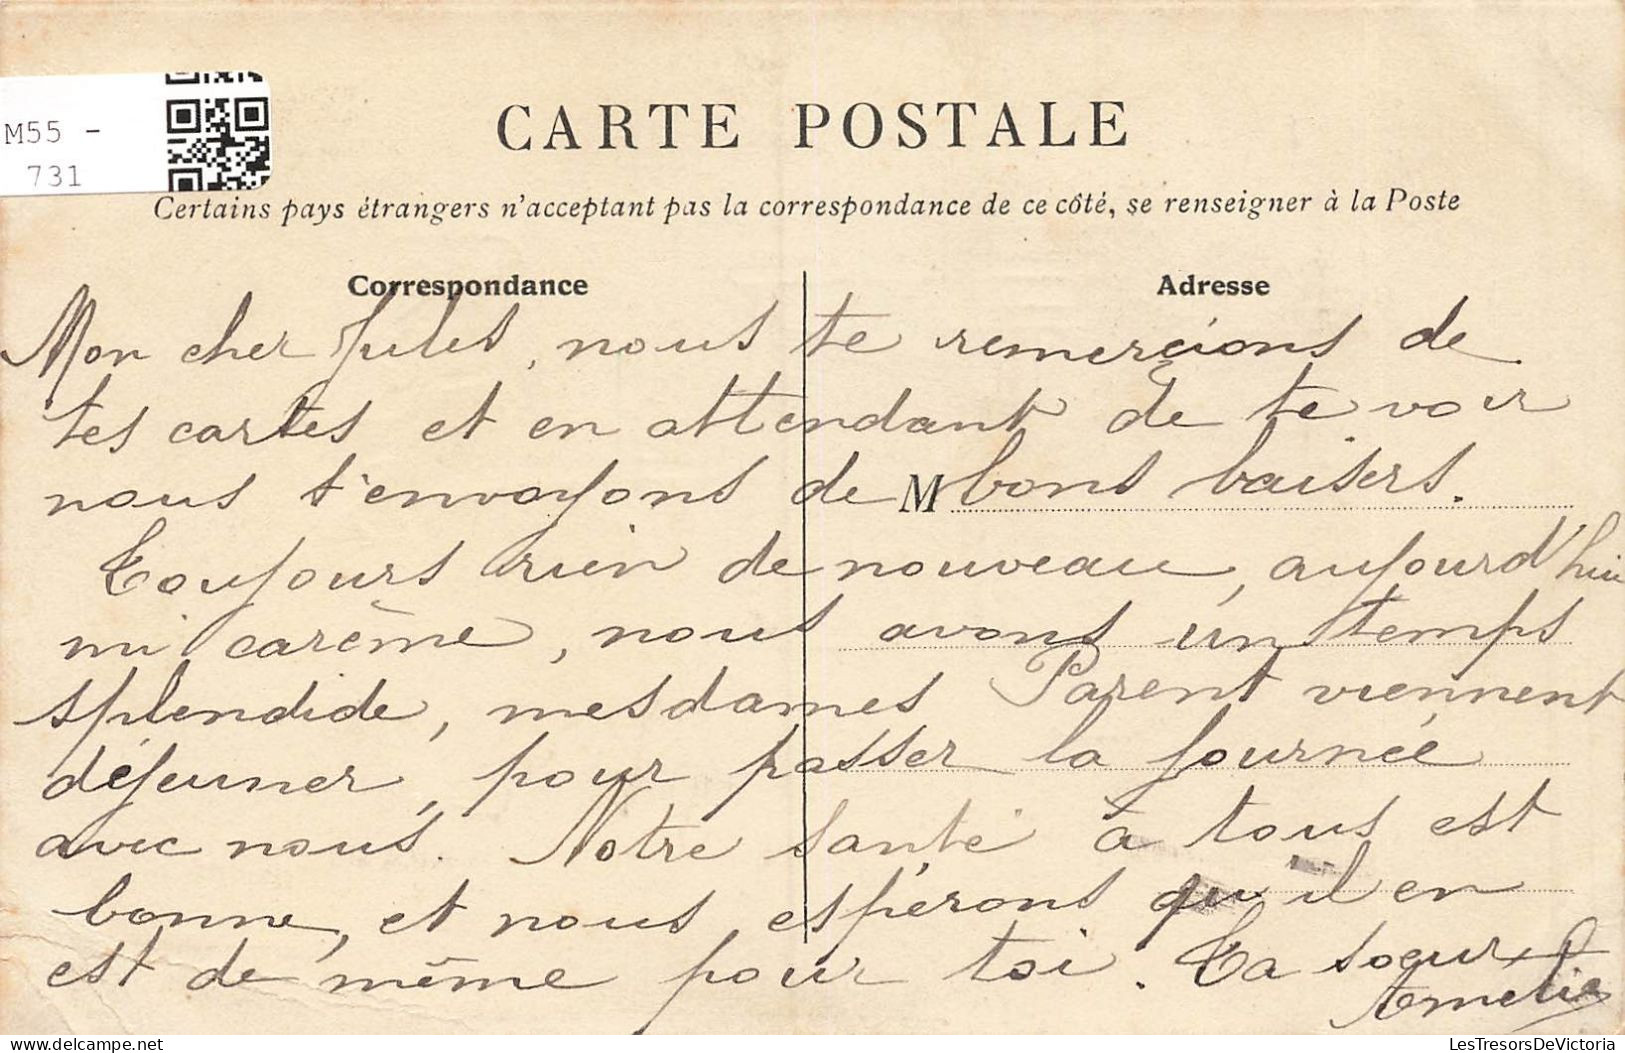 M55 -
731
CARTE POSTALE
Certains pays étrangers n'acceptant pas la correspondance de ce côté, se renseigner à la Poste
Correspondance
Adresse
Mon cher Jules, nous te remerçions de
tes cartes et en attendant de te voir
nous t'envoyons de M bons baisers.
Toujours rien de nouveau, aujourd'hui
mi carème, nous avons un temps
splendide, mesdames Parent viennent
déjeuner, pour passer la journée
avec nous. Notre santé à tous est
bonne, et nous espérons qu'il en
est de même pour toi. Ta soeur
Emelie
LesTresorsDeVictoria
https://www.delcampe.net